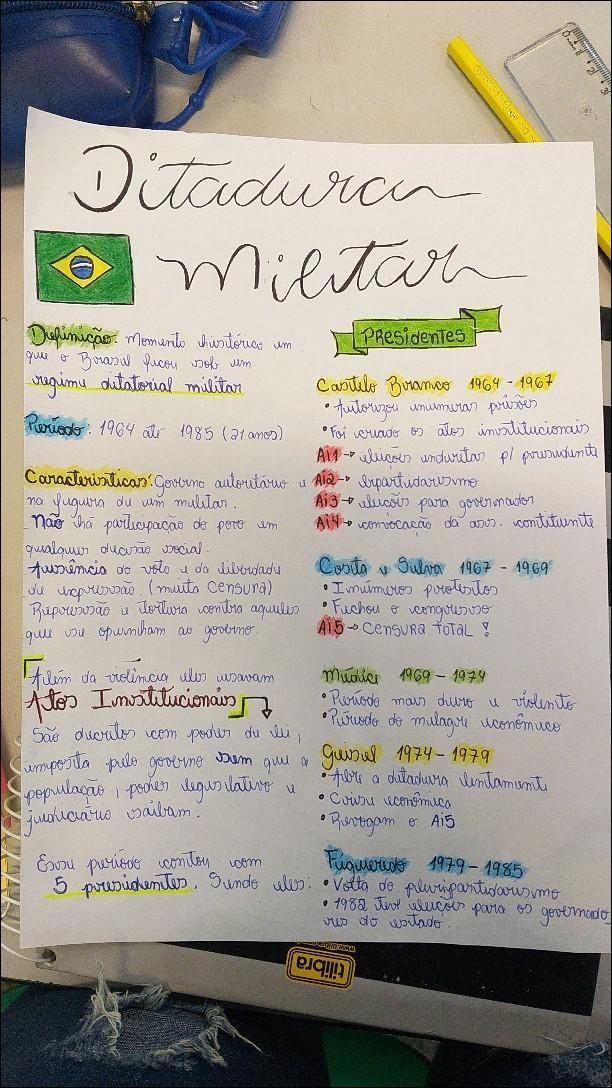 Ditadura
Militar
Definição: Momento histórico em
que o Brasil ficou sob um
regime ditatorial militar
Período: 1964 até 1985 (21 anos)
Características: Governo autoritário e
na figura de um militar.
Não há participação do povo em
qualquer decisão social.
Ausência do voto e da liberdade
de expressão. (muita censura)
Repressão e tortura contra aqueles
que se opunham ao governo.
Além da violência eles usavam
Atos Institucionais
São decretos com poder de lei,
imposta pelo governo sem que a
população, poder legislativo e
judiciário saibam.
Esse período contou com
5 presidentes. Sendo eles:
PRESIDENTES
Castelo Branco 1964 - 1967
• Autorizou inumeras prisões
• Foi criado os atos institucionais
Ai1 → eleições indiretas p/ presidente
Ai2 → bipartidarismo
Ai3 → eleições para governador
Ai4 → convocação da ass. constituinte
Costa e Silva 1967 - 1969
• Inúmeros protestos
• Fechou o congresso
Ai5 → CENSURA TOTAL !
Médici 1969 - 1974
• Período mais duro e violento
• Período do milagre econômico
Geisel 1974 - 1979
• Abre a ditadura lentamente
• Crise econômica
• Revogam o Ai5
Figueredo 1979 - 1985
• Volta do pluripartidarismo
• 1982 teve eleições para os governado_
res do estado.
tilibra
0 1 2 3